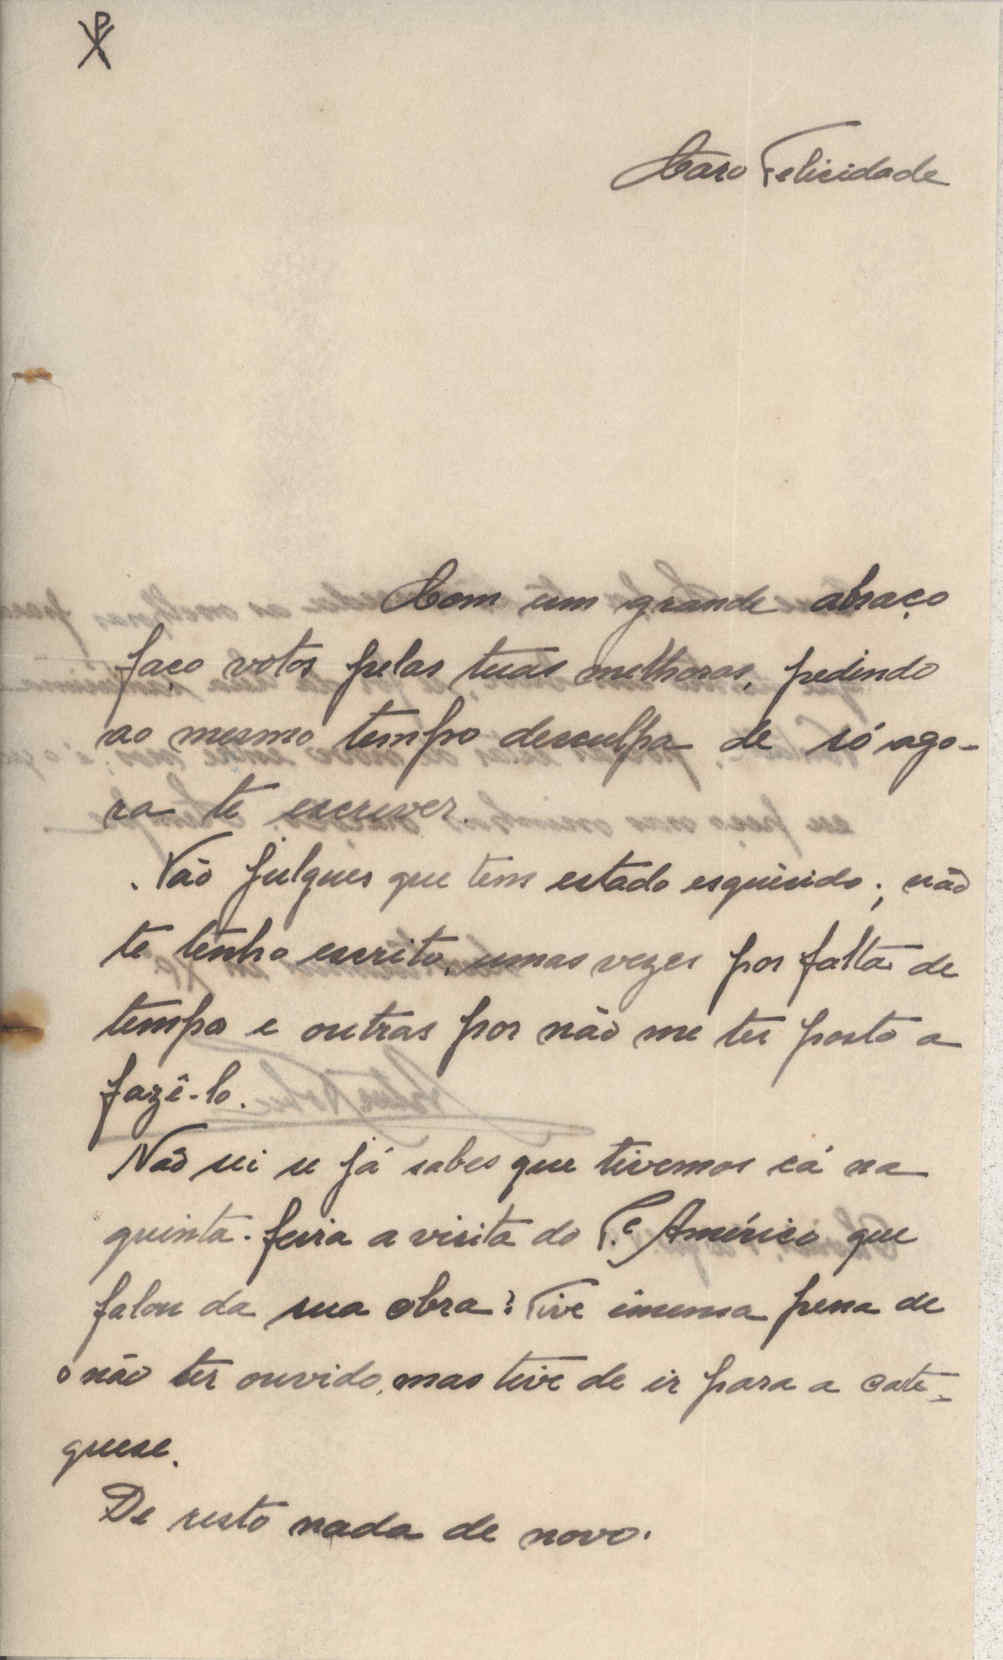 ☧
Caro Felicidade
Com um grande abraço
faço votos pelas tuas melhoras, pedindo
ao mesmo tempo desculpa de só ago-
ra te escrever.
Não julgues que tens estado esquecido; não
te tenho escrito, umas vezes por falta de
tempo e outras por não me ter posto a
fazê-lo.
Não sei se já sabes que tivemos cá na
quinta-feira a visita do P.e Américo que
falou da sua obra? Tive imensa pena de
o não ter ouvido, mas tive de ir para a cate-
quese.
De resto nada de novo.